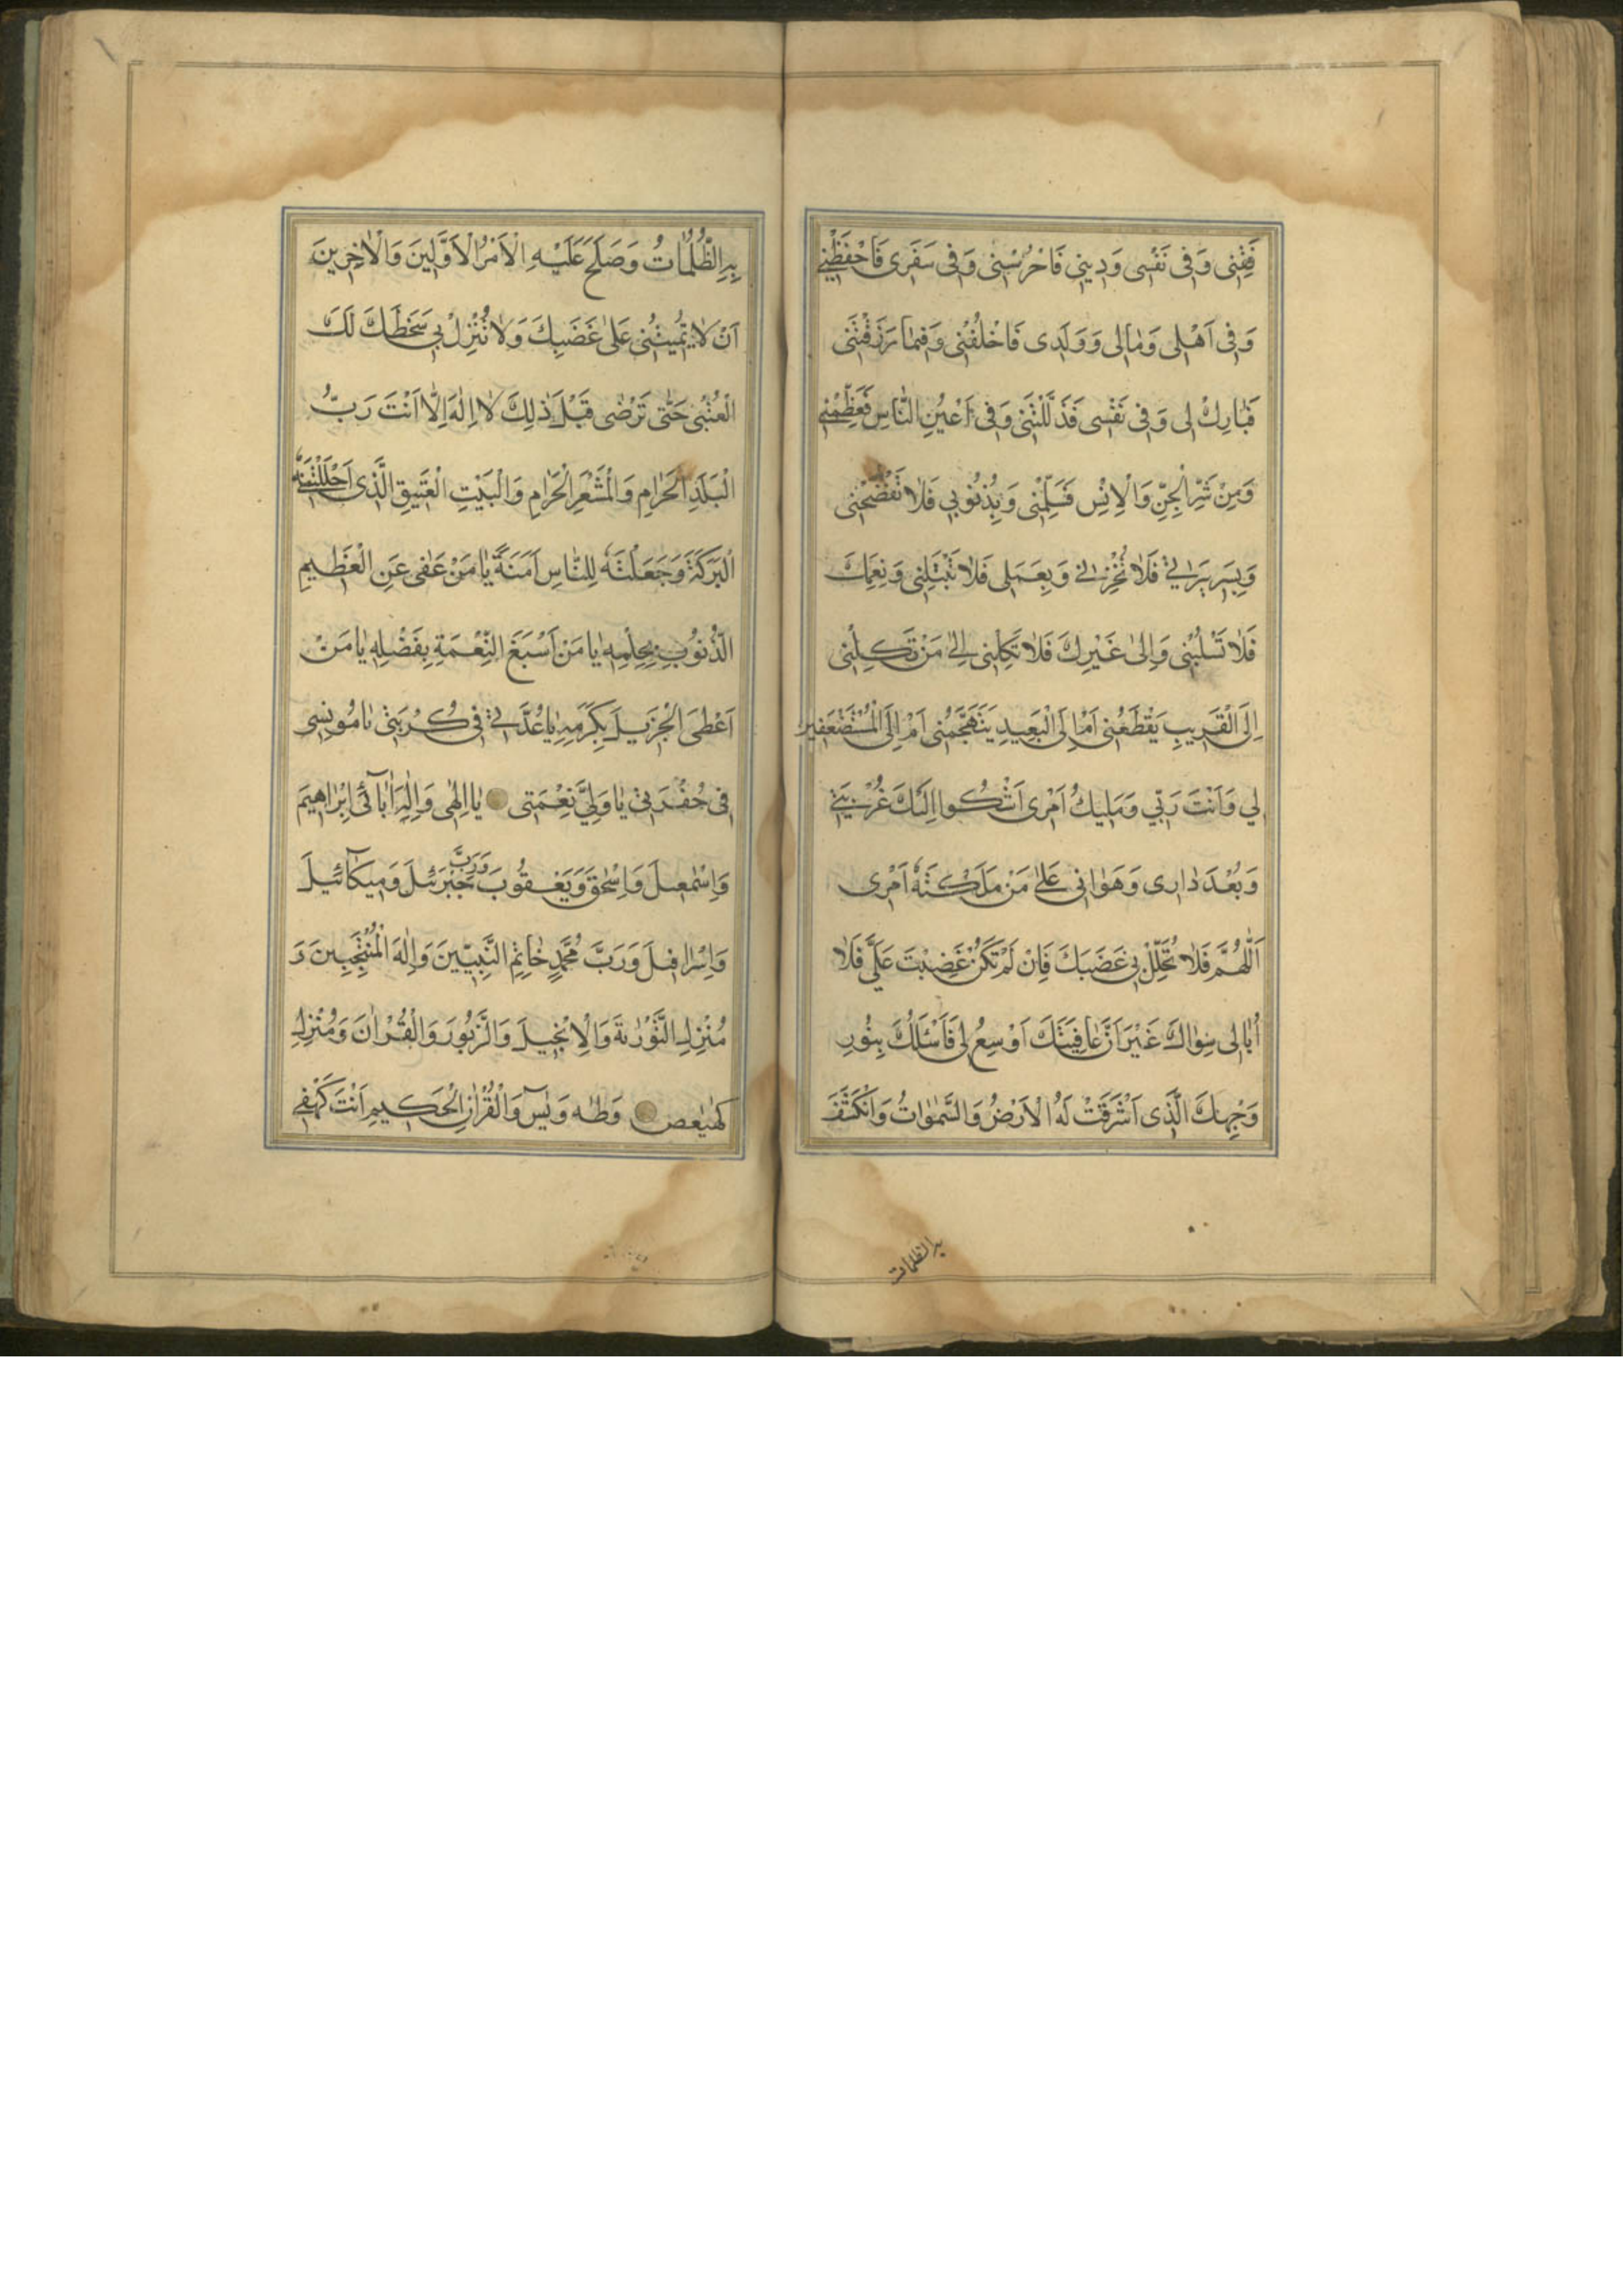 فَقِنِى وَفِى نَفْسِى وَدِينِى فَاحْرُسْنِى وَفِى سَفَرِى فَاحْفَظْنِى
وَفِى اَهْلِى وَمٰالِى وَوَلَدِى فَاخْلُفْنِى وَفِيمٰا رَزَقْتَنِى
فَبٰارِكْ لِى وَفِى نَفْسِى فَذَلِّلْنِى وَفِى اَعْيُنِ النّٰاسِ فَعَظِّمْنِى
وَمِنْ شَرِّ الْجِنِّ وَالْاِنْسِ فَسَلِّمْنِى وَبِذُنُوبِى فَلاٰ تَفْضَحْنِى
وَبِسَرِيرَتِى فَلاٰ تُخْزِنِى وَبِعَمَلِى فَلاٰ تَبْتَلِنِى وَنِعَمَكَ
فَلاٰ تَسْلُبْنِى وَاِلىٰ غَيْرِكَ فَلاٰ تَكِلْنِى اِلىٰ مَنْ تَكِلُنِى
اِلَى الْقَرِيبِ يَقْطَعُنِى اَمْ اِلَى الْبَعِيدِ يَتَهَجَّمُنِى اَمْ اِلَى الْمُسْتَضْعَفِينَ
لِى وَاَنْتَ رَبِّى وَمَلِيكُ اَمْرِى اَشْكُوا اِلَيْكَ غُرْبَتِى
وَبُعْدَ دٰارِى وَهَوٰانِى عَلىٰ مَنْ مَلَّكْتَهُ اَمْرِى
اَللّٰهُمَّ فَلاٰ تُحَلِّلْ بِى غَضَبَكَ فَاِنْ لَمْ تَكُنْ غَضِبْتَ عَلَىَّ فَلاٰ
اُبٰالِى سِوٰاكَ غَيْرَ اَنَّ عٰافِيَتَكَ اَوْسَعُ لِى فَاَسْئَلُكَ بِنُورِ
وَجْهِكَ الَّذِى اَشْرَقَتْ لَهُ الْاَرْضُ وَالسَّمٰوٰاتُ وَانْكَشَفَ
به الظلمات
بِهِ الظُّلُمٰاتُ وَصَلَحَ عَلَيْهِ الْاَمْرُ الْاَوَّلِينَ وَالْاٰخِرِينَ
اَنْ لاٰ تُمِيتَنِى عَلىٰ غَضَبِكَ وَلاٰ تُنْزِلْ بِى سَخَطَكَ لَكَ
الْعُتْبىٰ حَتّٰى تَرْضٰى قَبْلَ ذٰلِكَ لاٰ اِلٰهَ اِلّٰا اَنْتَ رَبُّ
الْبَلَدِ الْحَرٰامِ وَالْمَشْعَرِ الْحَرٰامِ وَالْبَيْتِ الْعَتِيقِ الَّذِى اَحْلَلْتَهُ
الْبَرَكَةَ وَجَعَلْتَهُ لِلنّٰاسِ اَمَنَةً يٰا مَنْ عَفٰى عَنِ الْعَظِيمِ
الذُّنُوبِ بِحِلْمِهِ يٰا مَنْ اَسْبَغَ النِّعْمَةِ بِفَضْلِهِ يٰا مَنْ
اَعْطَى الْجَزِيلَ بِكَرَمِهِ يٰا عُدَّتِى فِى كُرْبَتِى يٰا مُونِسِى
فِى حُفْرَتِى يٰا وَلِيَّ نِعْمَتِى يٰا اِلٰهِى وَاِلٰهَ اٰبٰائِى اِبْرٰاهِيمَ
وَاِسْمٰعِيلَ وَاِسْحٰقَ وَيَعْقُوبَ وَرَبَّ جَبْرَئِيلَ وَمِيكٰائِيلَ
وَاِسْرٰافِيلَ وَرَبَّ مُحَمَّدٍ خٰاتِمِ النَّبِيِّينَ وَاِلٰهَ الْمُنْتَجَبِينَ وَ
مُنْزِلَ التَّوْرٰيةَ وَالْاِنْجِيلَ وَالزَّبُورَ وَالْقُرْاٰنَ وَمُنْزِلَ
كٓهٰيٰعٓصٓ وَطٰهٰ وَيٰسٓ وَالْقُرْاٰنِ الْحَكِيمِ اَنْتَ كَهْفِى